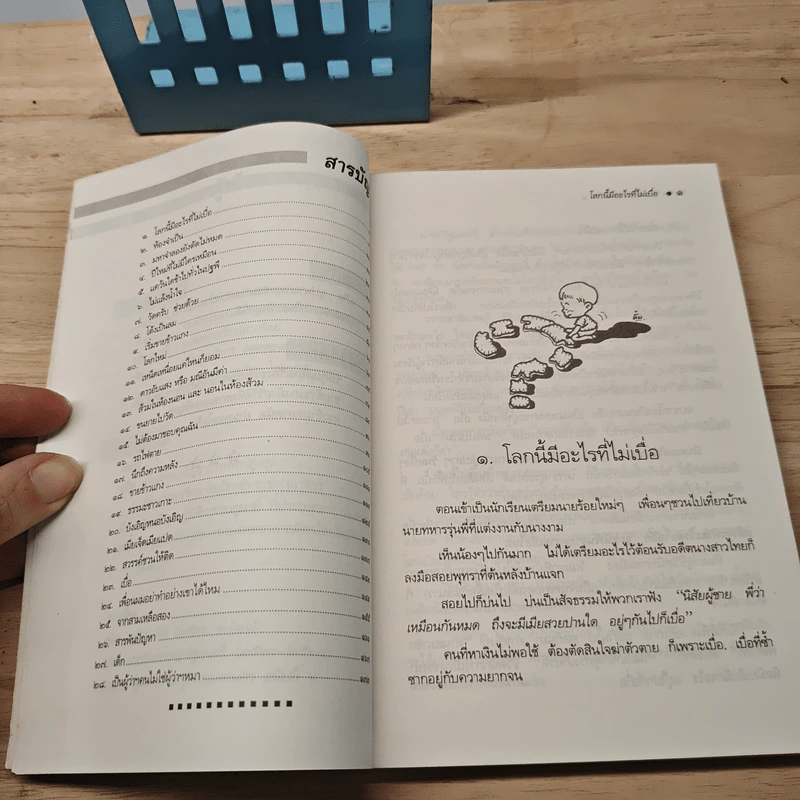 สารบัญ
๑. โลกนี้มีอะไรที่ไม่เบื่อ
๒. ท้องจำเป็น
๓. มหาจำลองยังตัดไม่หมด
๔. ปีใหม่ที่ไม่มีใครเหมือน
๕. แคว้นใดข้าไปทั่วในปฐพี
๖. ไม่แล้งน้ำใจ
๗. วัดครับ ช่วยด้วย
๘. โด้งเป็นลม
๙. เริ่มขายข้าวแกง
๑๐. โลกใหม่
๑๑. เหน็ดเหนื่อยแค่ไหนก็ยอม
๑๒. ดาวอับแสง หรือ มณีอันมีค่า
๑๓. ส้วมในห้องนอน และ นอนในห้องส้วม
๑๔. ขนยายไปวัด
๑๕. ไม่ต้องมาขอบคุณฉัน
๑๖. รถไฟตาย
๑๗. นึกถึงความหลัง
๑๘. ขายข้าวแกง
๑๙. ธรรมะชาวเกาะ
๒๐. บังเอิญหนอบังเอิญ
๒๑. เมียเจ็ดเมียแปด
๒๒. สวรรค์ชวนให้ติด
๒๓. เบื่อ
๒๔. เพื่อนผมอย่าทำอย่างเขาได้ไหม
๒๕. จากสามเหลือสอง
๒๖. สารพันปัญหา
๒๗. เด็ก
๒๘. เป็นผู้ว่าฯคนไม่ใช่ผู้ว่าฯหมา
โลกนี้มีอะไรที่ไม่เบื่อ ● ๑
๑. โลกนี้มีอะไรที่ไม่เบื่อ
ตอนเข้าเป็นนักเรียนเตรียมนายร้อยใหม่ๆ เพื่อนๆชวนไปเที่ยวบ้าน
นายทหารรุ่นพี่ที่แต่งงานกับนางงาม
เห็นน้องๆไปกันมาก ไม่ได้เตรียมอะไรไว้ต้อนรับอดีตนางสาวไทยก็
ลงมือสอยพุทราที่ต้นหลังบ้านแจก
สอยไปก็บ่นไป บ่นเป็นสัจธรรมให้พวกเราฟัง "นิสัยผู้ชาย พี่ว่า
เหมือนกันหมด ถึงจะมีเมียสวยปานใด อยู่ๆกันไปก็เบื่อ"
คนที่หาเงินไม่พอใช้ ต้องตัดสินใจฆ่าตัวตาย ก็เพราะเบื่อ, เบื่อที่ซ้ำ
ซากอยู่กับความยากจน